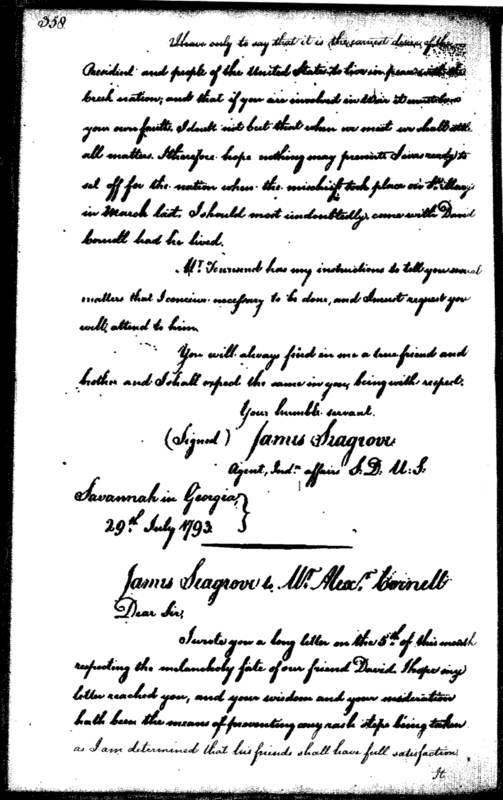 358
I have only to say that it is the earnest desire of the
President and people of the United States to live in peace with the
Creek nation; and that if you are involved in war it must be
your own faults. I doubt not but that when we meet we shall settle
all matters. I therefore hope nothing may prevent. I was ready to
set off for the nation when the mischief took place on St. Marys
in March last. I should most undoubtedly came with David
Cornell had he lived.
Mr. Townsend has my instructions to tell you several
matters that I conceive necessary to be done, and I must request you
will attend to him.
You will always find in me a true friend and
brother and I shall expect the same in you, being with respect.
Your humble servant.
(Signed) James Seagrove
Agent, Indn. affairs S. D. U. S.
Savannah in Georgia,
29th July 1793.
James Seagrove to Mr. Alexr. Cornell
Dear Sir,
I wrote you a long letter on the 5th of this month
respecting the melancholy fate of our friend David. I hope my
letter reached you, and your wisdom and your moderation
hath been the means of preventing any rash steps being taken
as I am determined that his friends shall have full satisfaction.
It